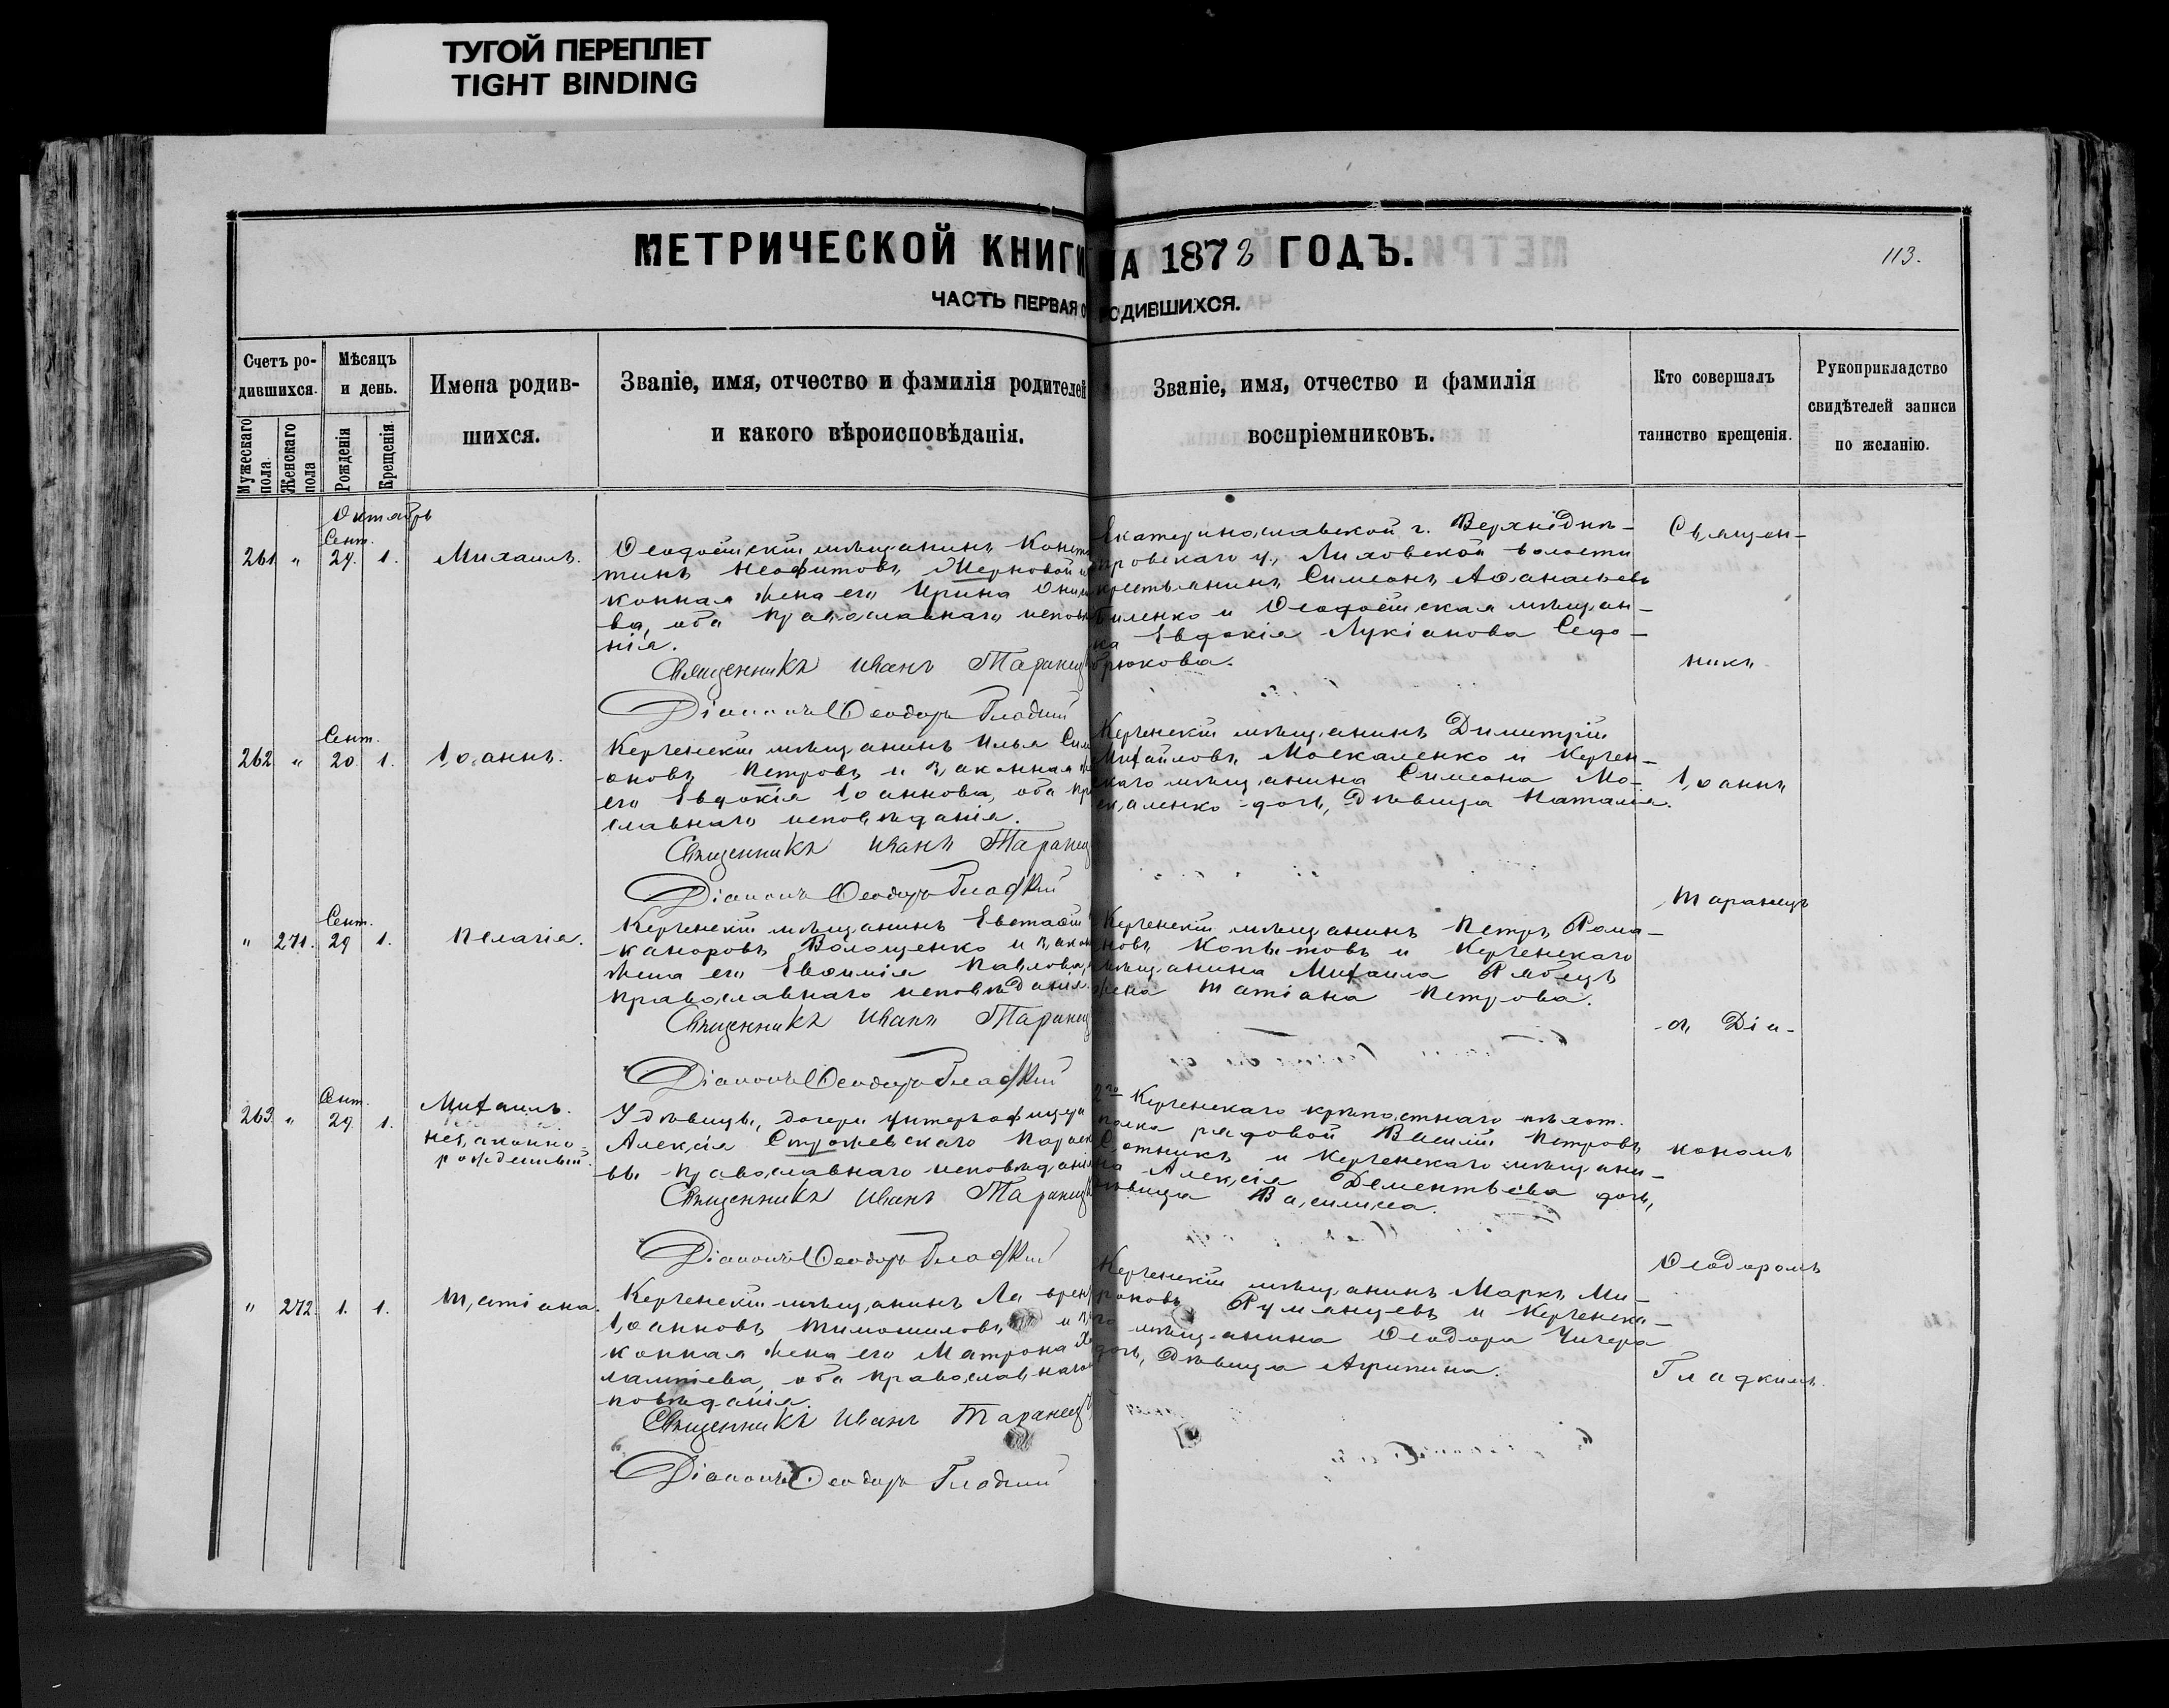 ТУГОЙ ПЕРЕПЛЕТ
TIGHT BINDING
МЕТРИЧЕСКОЙ КНИГИ НА 1872 ГОДЪ.
113.
ЧАСТЬ ПЕРВАЯ О РОДИВШИХСЯ.
Счетъ ро-
дившихся.
Мужескаго пола
Женскаго пола
Мѣсяцъ
и день.
Рожденія
Крещенія.
Имена родив-
шихся.
Званіе, имя, отчество и фамилія родителей
и какого вѣроисповѣданія.
Званіе, имя, отчество и фамилія
воспріемниковъ.
Кто совершалъ
таинство крещенія.
Рукоприкладство
свидѣтелей записи
по желанію.
Октябрь
Сент.
261 " 29. 1. Михаилъ.
Ѳеодосійскій мѣщанинъ Конста
тинъ Неофитовъ
конная жена его Ирина
ва, оба православнаго исповѣ
нія.
Священникъ Иванъ Таранец
Діаконъ Ѳеодоръ Гладкій
Екатеринославской г. Верхнѣднѣ-
провскаго у., Лиховской волости
крестьянинъ Симеонъ Аѳанасьевъ
Биленко и Ѳеодосійская мѣщан-
ка Евдокія Лукіанова Седо-
брюкова.
Священ-
никъ
Сент.
262 " 20. 1. Іоаннъ.
Керченскій мѣщанинъ Илья Сим
оновъ Петровъ и законная же
его Евдокія Іоаннова, оба пра
славнаго исповѣданія.
Священникъ Иванъ Таранец
Діаконъ Ѳеодоръ Гладкій
Керченскій мѣщанинъ Димитрій
Михайловъ Москаленко и Керчен-
скаго мѣщанина Симеона Мо-
скаленко дочь, дѣвица Наталія.
Іоаннъ
Таранецъ
Сент.
" 271. 29 1. Пелагія.
Керченскій мѣщанинъ Евстаѳій
каноровъ Волощенко и закон
жена его Евѳимія Павлова,
православнаго исповѣданія.
Священникъ Иванъ Таранец
Діаконъ Ѳеодоръ Гладкій
Керченскій мѣщанинъ Петръ Рома-
новъ Копытовъ и Керченскаго
мѣщанина Михаила Рябецъ
жена Татіана Петрова.
съ Діа-
Сент.
263. " 29. 1. Михаилъ.
незаконно-
рожденный.
У дѣвицы, дочери унтеръ-офицера
Алексія Строжевскаго Параск
вы православнаго исповѣданія
Священникъ Иванъ Таранец
Діаконъ Ѳеодоръ Гладкій
2го Керченскаго крѣпостнаго пѣхот.
полка рядовой Василій Петровъ
Сотникъ и Керченскаго мѣщани-
на Алексія Дементьева дочь,
дѣвица Василиса.
кономъ
Ѳеодоромъ
" 272. 1. 1. Татіана.
Керченскій мѣщанинъ Лаврен
Іоанновъ Тимошиловъ и за
конная жена его Матрона Ха
лампіева, оба православнаго
повѣданія.
Священникъ Иванъ Таранец
Діаконъ Ѳеодоръ Гладкій
Керченскій мѣщанинъ Маркъ Ми-
роновъ Румянцевъ и Керченска-
го мѣщанина Ѳеодора Чичера
дочь, дѣвица Агрипина.
Гладкимъ.